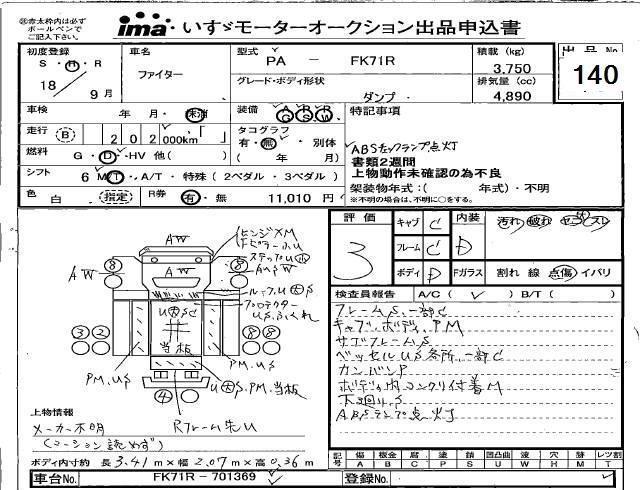 ㊟赤太枠内は必ず
ボールペンで
ご記入下さい。
ima いすゞモーターオークション出品申込書
初度登録
S・H・R
18 9月
車名
ファイター
型式
PA - FK71R
グレード・ボディ形状
ダンプ
積載 (kg)
3,750
排気量 (cc)
4,890
出品No
140
車検
年 月・未・渭
装備
A/G P/S R/W
特記事項
走行 (B) 202,000km
タコグラフ
有・無・別体
( 年 月)
燃料 G・D・HV 他( )
シフト 6 MT・A/T・特殊(2ペダル・3ペダル)
色 白 (指定)
R券 有・無 11,010 円
ABSチェックランプ点灯
書類2週間
上物動作未確認の為不良
架装物年式:( 年式)・不明
※不明の場合は、不明に○をする。
評価
3
キャブ C
フレーム C
ボディ D
内装 D
汚れ 破れ ヤニ スレ
Fガラス 割れ 線 点傷 イバリ
検査員報告 A/C( ✓ ) B/T( )
フレームS、一部C
キャブ、ボディ、PM
サブフレームS
ベッセルUS各所、一部C
カンバンP
ボディ内コンクリ付着M
下回りS
ABSランプ点灯
ヒンジ×M
ステップU小
AW
AW
AW
8
8
ルーフU大S
プロテクター
US、ふくれ
U大S
当板
3 2
8 8
PM、US
PM、US
U大S、PM、当板
4
Rフレーム先U
上物情報
メーカー不明
(コーション読めず)
ボディ内寸約 長3.41m×幅2.07m×高0.36m
車台No. FK71R-701369
登録No.
記号 傷 板金 腐 塗 錆 凹凸曲 波 穴 跡 レツ割
A B C P S U W H M T